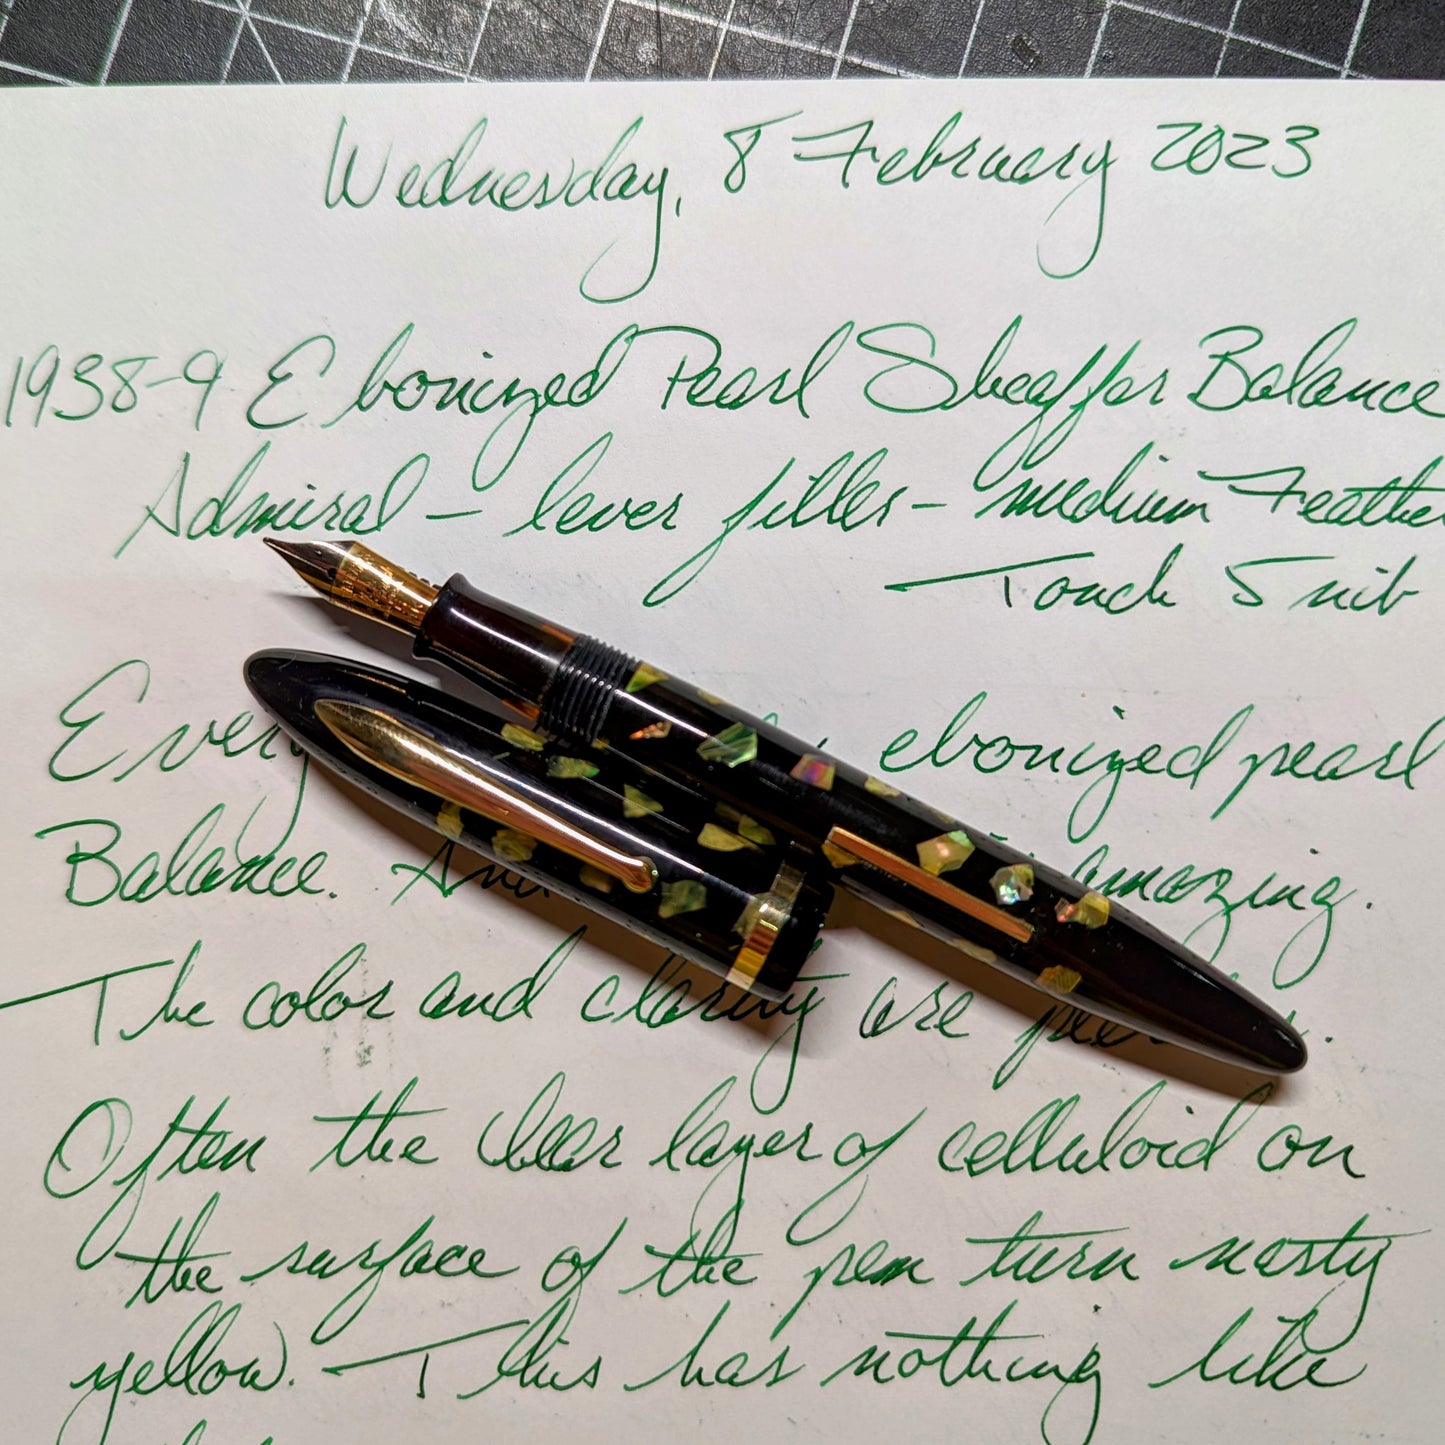 Wednesday, 8 February 2023
1938-9 Ebonized Pearl Sheaffer Balance
Admiral – lever filler – medium Feather
Touch 5 nib
Every ebonized pearl
Balance. And amazing.
The color and clarity are
Often the clear layer of celluloid on
the surface of the pen turn nasty
yellow. This has nothing like